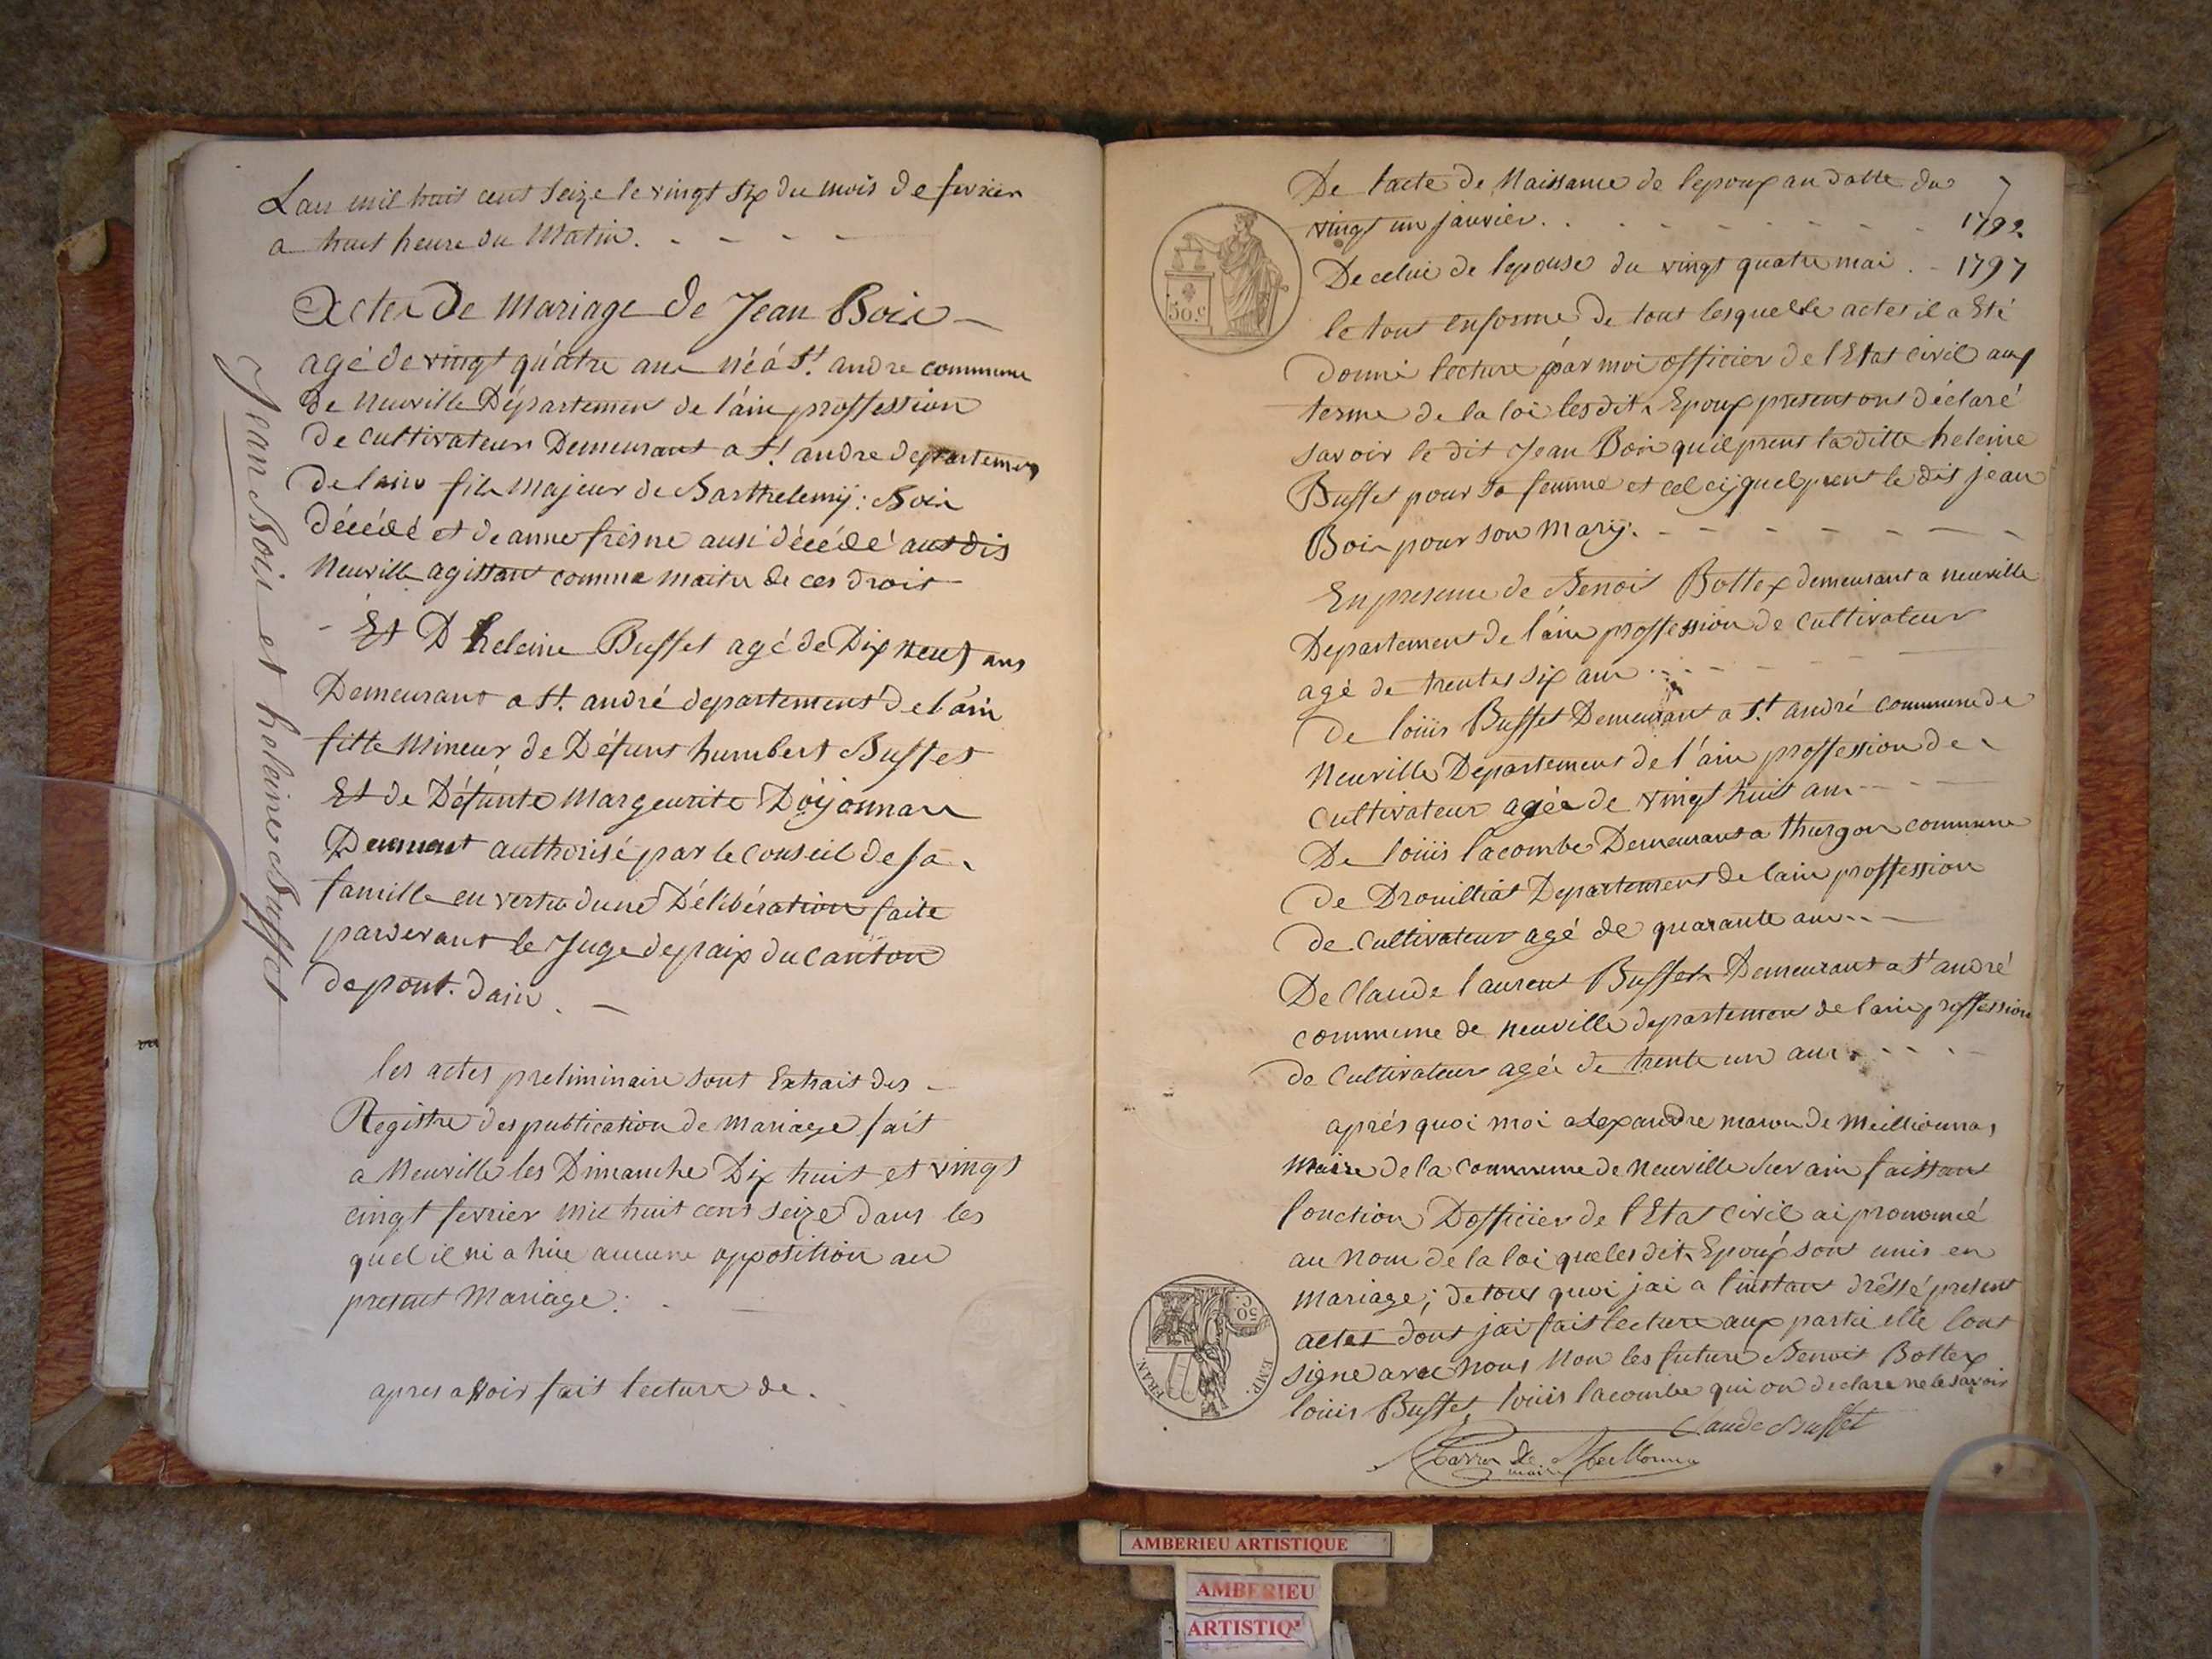 Lan mil huit cent seize le vingt six du mois de fevrier
a huit heure du Matin. - - - -
Acte De Mariage de Jean Bois -
agé de vingt quatre ans né à St. andre commune
de Neuville Département de l'ain proffession
de cultivateur Demeurant a St. andre departement
de lain fils Majeur de Barthelemij: Bois
décédé et de anne fresne ausi décédé audis
Neuville agissant comme maitre de ces droit
- Et D heleine Buffet agé de Dix neuf ans
Demeurant a St. andré departement de l'ain
fille Mineur de Défunt humbert Buffet
Et de Défunte Margeurite Doyonnax
Deument authorisé par le conseil de sa
famille en vertu dune Délibération faite
pardevant le Juge de paix du Canton
de pont. dain. -
Jean Bois et heleine Buffet
les actes preliminaire sont Extrait des -
Registre des publication de Mariage fait
a Neuville les Dimanche Dix huit et vingt
cingt fevrier mil huit cent seize dans les
quel il ni a hue aucune opposition au
present Mariage: . -
apres avoir fait lecture de.
De lacte de Naissance de lepoux an datte du
vingt un janvier. . . - - - - - - 1792
De celui de lepouse du vingt quatre mai . - 1797
le tout enforme de tout lesquelle actes il a Eté
donné lecture par moi officier de l'Etat civil aux
terme de la loi lesdits Epoux present ont déclaré
savoir le dit Jean Bois quil prent la ditte heleine
Buffet pour sa femme et cel cij quel prent le dit jean
Bois pour son Marij. - - - - - - -
En presence de Benoit Bottex demeurant a neuville
Departement de l'ain proffession de Cultivateur
agé de trentes six ans . - - - -
De loüis Buffet Demeurant a St. andré commune de
Neuville Departement de l'ain proffession de
cultivateur agée de vingt huit ans - - -
De loüis lacombe Demeurant a thurgon commune
de Drouilliat Departement de lain proffession
de Cultivateur agé de quarante ans - - -
De Claude laurent Buffet Demeurant a St andré
commune de neuville departement de lain proffession
de Cultivateur agée de trente un ans . - - -
aprés quoi moi alexandre maron de Meillionnas
Maire de la Commune de Neuville sur ain faissant
fonction D'officier de l'Etat civil ai prononcé
au nom de la loi que les dits Epoux sont unis en
mariage; de tous quoi jai a l'instant dréssé présent
actes dont jai fait lecture aux partie elle lont
signe avec nous Non les future Benoit Bottex
loüis Buffet, loüis lacombe qui on declare ne le savoir
Claude Buffet
Marron de Meillonna
maire
50.c
50. C.
FRAN.
EMP.
AMBERIEU ARTISTIQUE
AMBERIEU
ARTISTIQ